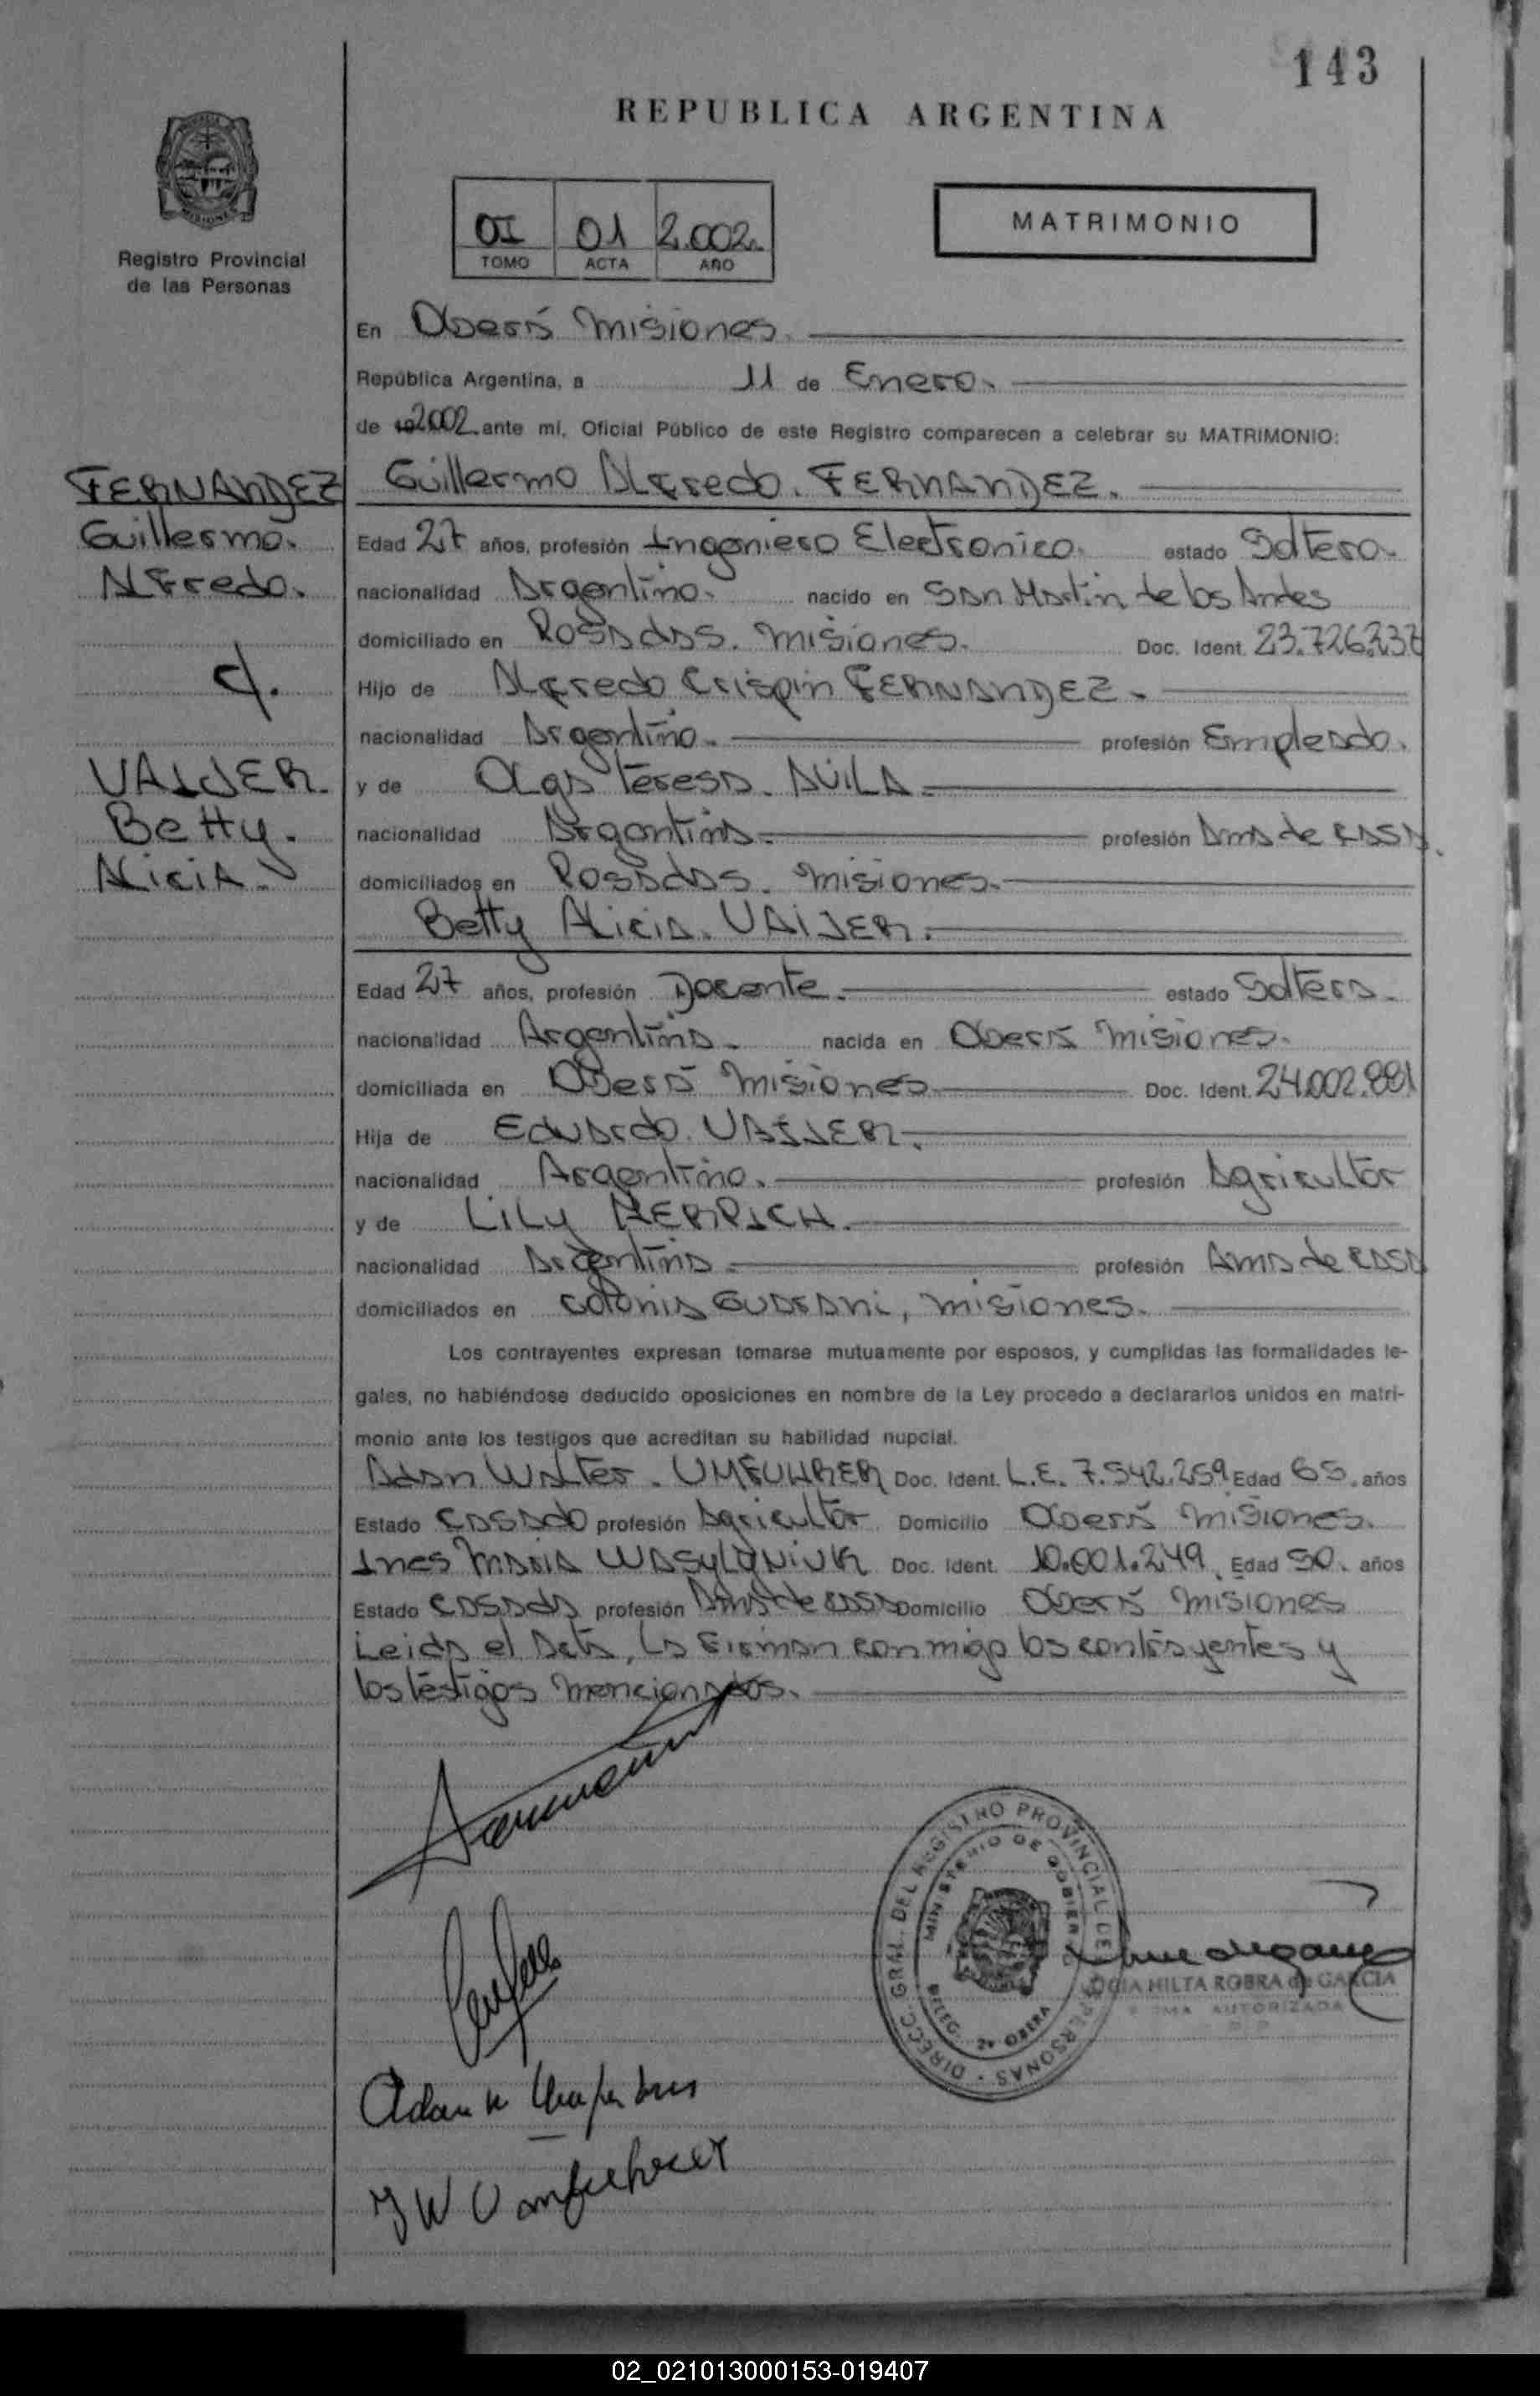 143
REPUBLICA ARGENTINA
MISIONES
Registro Provincial
de las Personas
OI 01 2.002.
TOMO ACTA AÑO
MATRIMONIO
En Oberá Misiones.
República Argentina, a 11 de Enero.
de 19 2002 ante mí, Oficial Público de este Registro comparecen a celebrar su MATRIMONIO:
FERNANDEZ
Guillermo.
Alfredo.
c/.
VAIJER.
Betty.
Alicia.
Guillermo Alfredo. FERNANDEZ.
Edad 27 años, profesión Ingeniero Electronico. estado Soltero.
nacionalidad Argentino. nacido en San Martin de los Andes
domiciliado en Posadas. Misiones. Doc. Ident. 23.726.237
Hijo de Alfredo Crispin FERNANDEZ.
nacionalidad Argentino. profesión Empleado.
y de Olga Teresa. AVILA.
nacionalidad Argentina. profesión Ama de casa.
domiciliados en Posadas. Misiones.
Betty Alicia. VAIJER.
Edad 27 años, profesión Docente. estado Soltera.
nacionalidad Argentina. nacida en Oberá Misiones.
domiciliada en Oberá Misiones. Doc. Ident. 24.002.881
Hija de Eduardo. VAIJER.
nacionalidad Argentino. profesión Agricultor
y de Lily
nacionalidad Argentina. profesión Ama de casa
domiciliados en Colonia Guarani, Misiones.
Los contrayentes expresan tomarse mutuamente por esposos, y cumplidas las formalidades le-
gales, no habiéndose deducido oposiciones en nombre de la Ley procedo a declararlos unidos en matri-
monio ante los testigos que acreditan su habilidad nupcial.
Adan Walter. UMFUHRER Doc. Ident. L.E. 7.542.259. Edad 65. años
Estado Casado profesión Agricultor Domicilio Oberá Misiones.
Ines Maria WASYLUNIUK Doc. Ident. 10.001.249. Edad 50. años
Estado Casada profesión Ama de casa Domicilio Oberá Misiones
Leida el Acta, la Firman conmigo los contrayentes y
los testigos mencionados.
DIRECC. GRAL. DEL REGISTRO PROVINCIAL DE PERSONAS
MINISTERIO DE GOBIERNO
DELEG. 2ª OBERA
HILTA ROBRA de GARCIA
AUTORIZADA
02_021013000153-019407